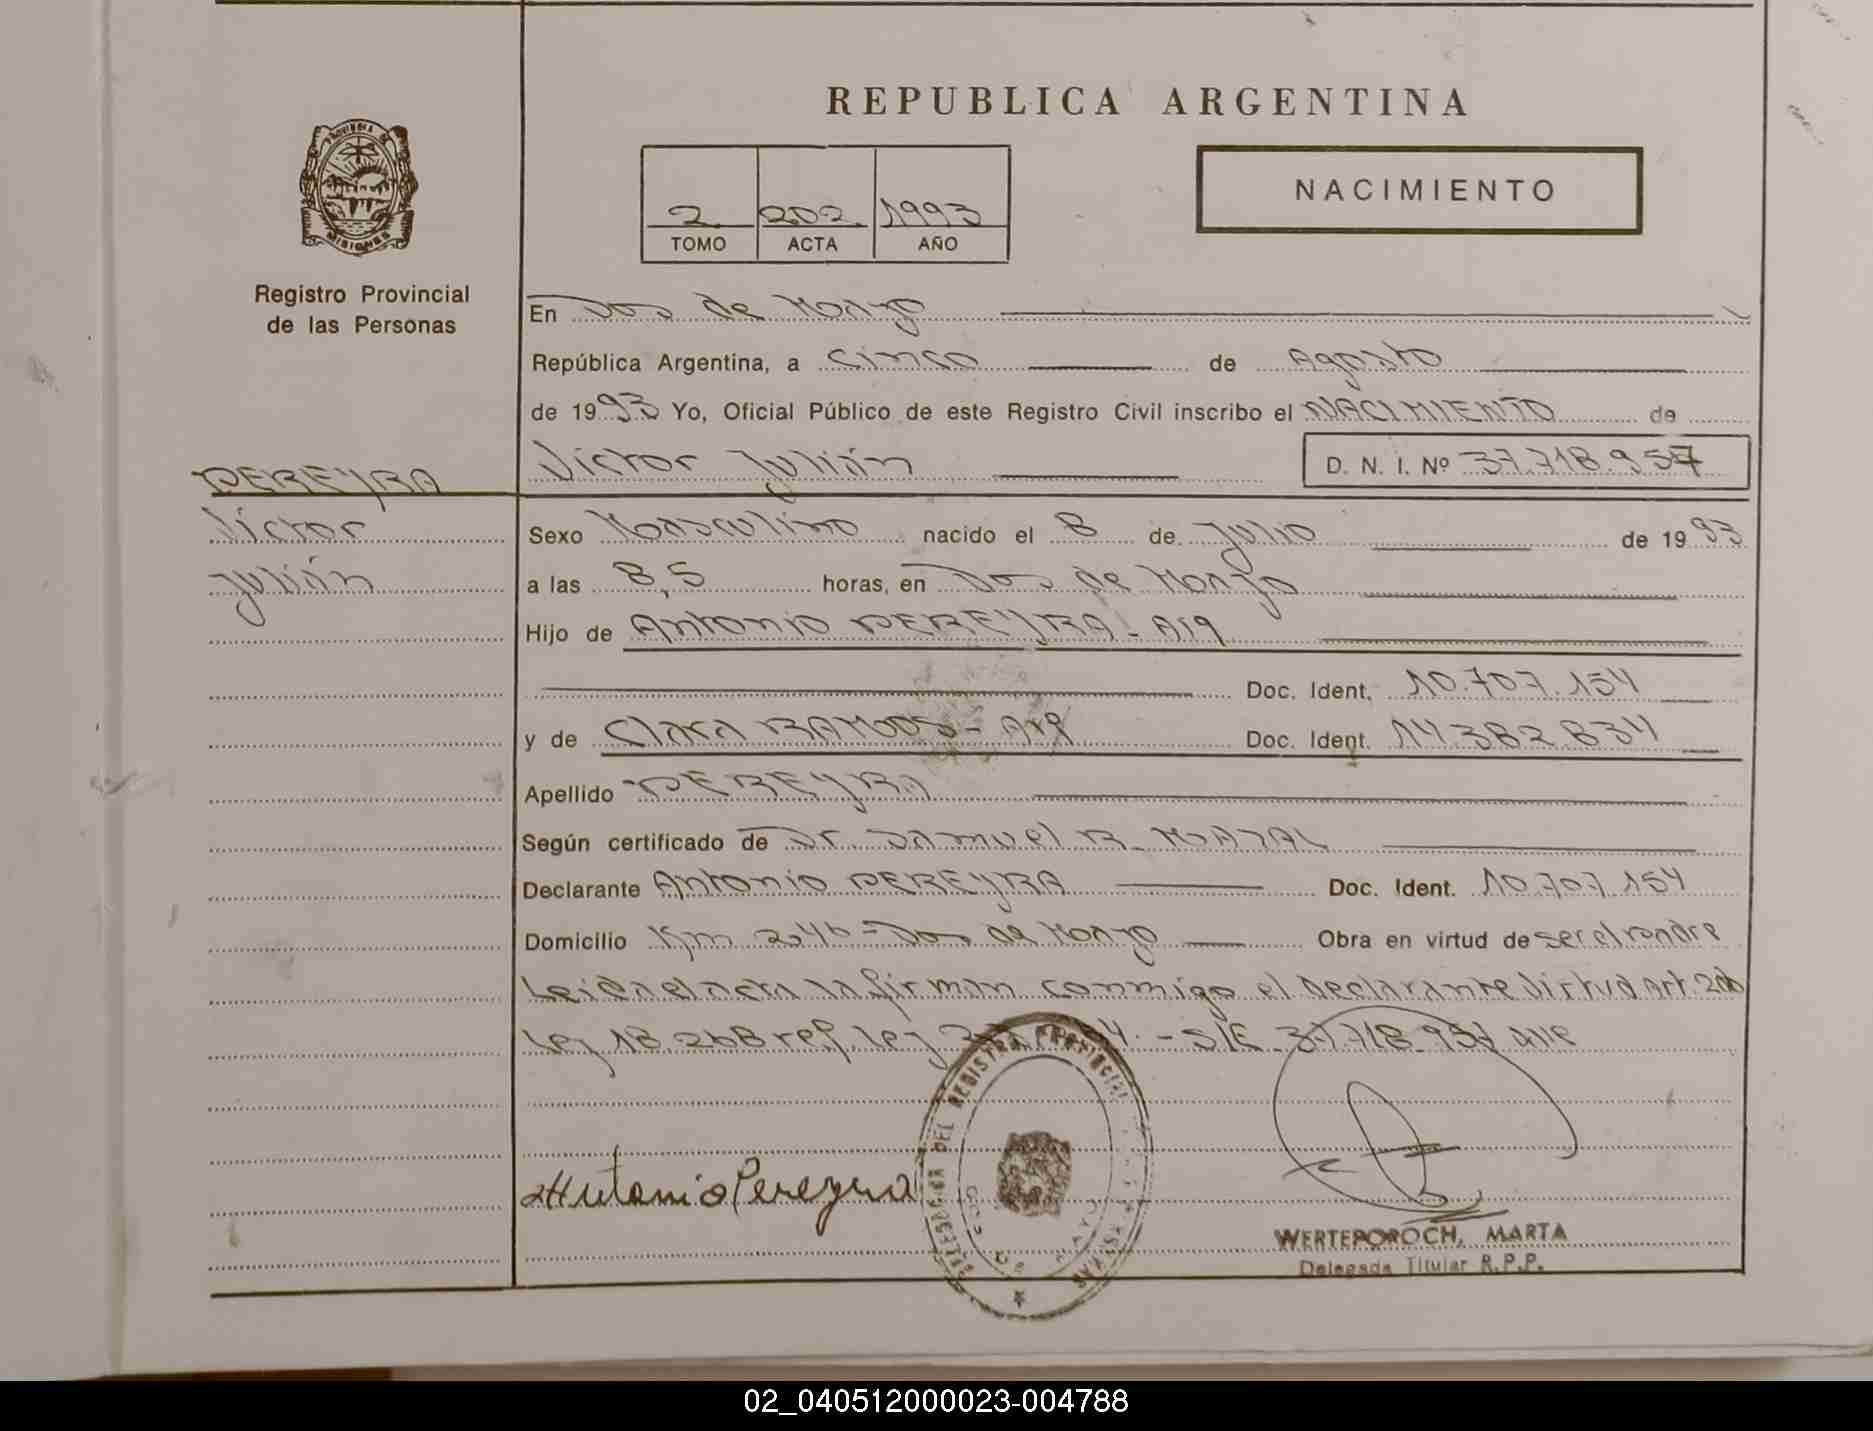 REPUBLICA ARGENTINA
PROVINCIA DE
MISIONES
2 202 1993
TOMO ACTA AÑO
NACIMIENTO
Registro Provincial
de las Personas
En Dos de Mayo
República Argentina, a cinco de Agosto
de 1993 Yo, Oficial Público de este Registro Civil inscribo el NACIMIENTO de
Víctor Julián D. N. I. Nº 37.718.957
PEREYRA
Víctor
Julián
Sexo Masculino nacido el 8 de Julio de 1993
a las 8,5 horas, en Dos de Mayo
Hijo de Antonio PEREYRA - Arg
Doc. Ident. 10.707.154
y de Clara RAMOS - Arg Doc. Ident. 14.382.834
Apellido PEREYRA
Según certificado de Dr. Samuel R.
Declarante Antonio PEREYRA Doc. Ident. 10.707.154
Domicilio Km 246 - Dos de Mayo Obra en virtud de ser el padre
Leída el acta la firman conmigo el declarante Virtud Art.
Ley 18.268 ref. ley - S/E 37.718.957
Antonio Pereyra
DELEGACION DEL REGISTRO PROVINCIAL
DOS DE MAYO
WERTEPOROCH, MARTA
Delegada Titular R.P.P.
02_040512000023-004788